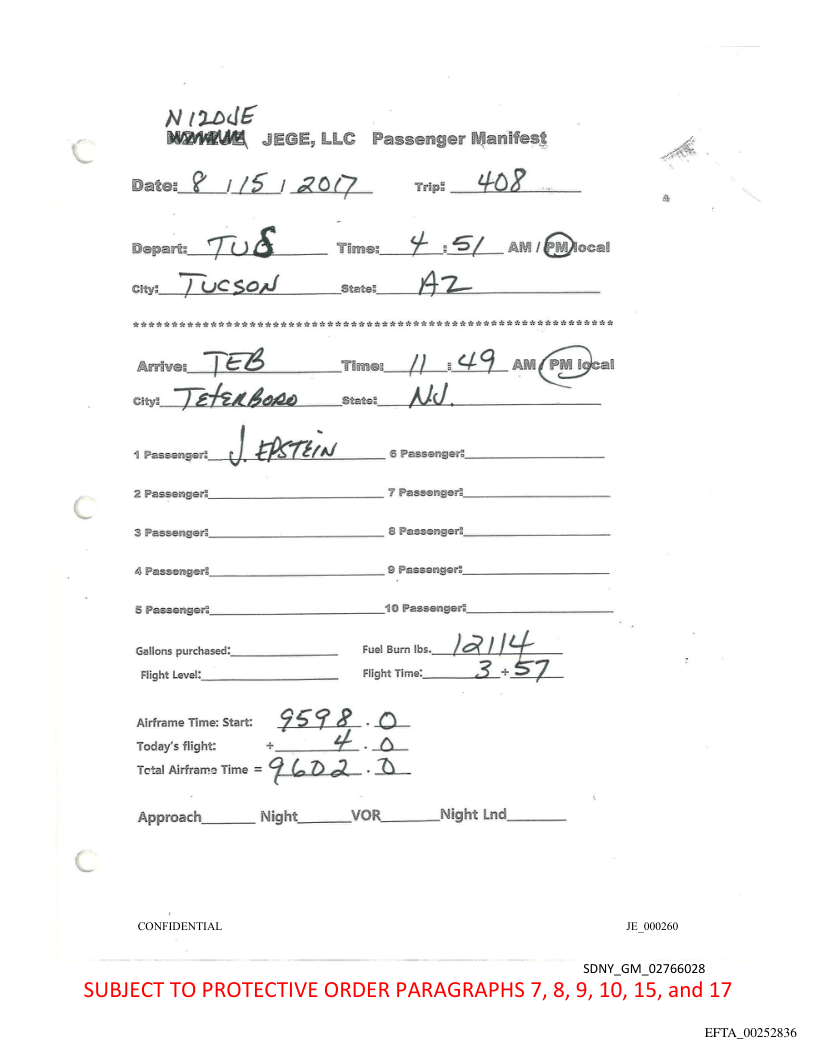 N120JE
JEGE, LLC Passenger Manifest
Date: 8 / 15 / 2017 Trip: 408
Depart: TUS Time: 4 : 51 AM / PM local
City: TUCSON State: AZ
************************************************************
Arrive: TEB Time: 11 : 49 AM / PM local
City: TETERBORO State: NJ.
1 Passenger: J. EPSTEIN 6 Passenger:
2 Passenger: 7 Passenger:
3 Passenger: 8 Passenger:
4 Passenger: 9 Passenger:
5 Passenger: 10 Passenger:
Gallons purchased: Fuel Burn lbs. 12114
Flight Level: Flight Time: 3 + 57
Airframe Time: Start: 9598 . 0
Today's flight: + 4 . 0
Total Airframe Time = 9602 . 0
Approach Night VOR Night Lnd
CONFIDENTIAL JE_000260
SDNY_GM_02766028
SUBJECT TO PROTECTIVE ORDER PARAGRAPHS 7, 8, 9, 10, 15, and 17
EFTA_00252836